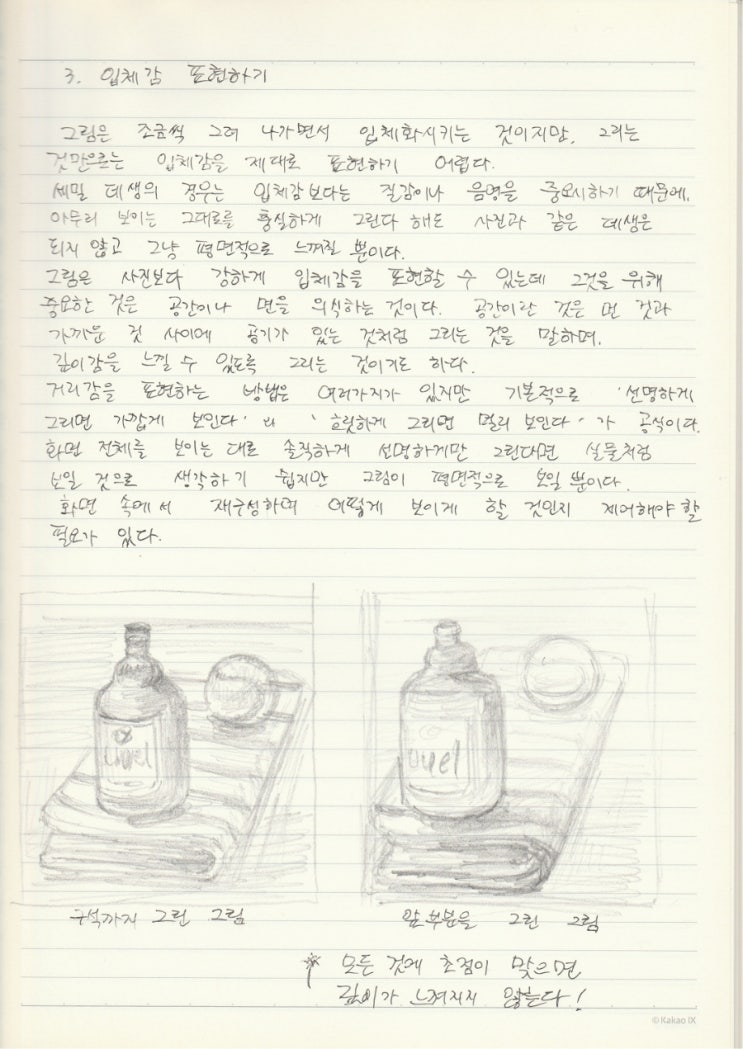 3. 입체감 표현하기
그림은 조금씩 그려 나가면서 입체화시키는 것이지만, 그리는
것만으로는 입체감을 제대로 표현하기 어렵다.
세밀 데생의 경우는 입체감보다는 질감이나 음영을 중요시하기 때문에,
아무리 보이는 그대로를 충실하게 그린다 해도 사진과 같은 데생은
되지 않고 그냥 평면적으로 느껴질 뿐이다.
그림은 사진보다 강하게 입체감을 표현할 수 있는데 그것을 위해
중요한 것은 공간이나 면을 의식하는 것이다. 공간이란 것은 먼 것과
가까운 것 사이에 공기가 있는 것처럼 그리는 것을 말하며,
깊이감을 느낄 수 있도록 그리는 것이기도 하다.
거리감을 표현하는 방법은 여러가지가 있지만 기본적으로 '선명하게
그리면 가깝게 보인다' 와 '흐릿하게 그리면 멀리 보인다' 가 공식이다.
화면 전체를 보이는 대로 솔직하게 선명하게만 그린다면 실물처럼
보일 것으로 생각하기 쉽지만 그림이 평면적으로 보일 뿐이다.
화면 속에서 재구성하며 어떻게 보이게 할 것인지 제어해야 할
필요가 있다.
구석까지 그린 그림
앞부분을 그린 그림
* 모든 것에 초점이 맞으면
깊이가 느껴지지 않는다!
© Kakao IX